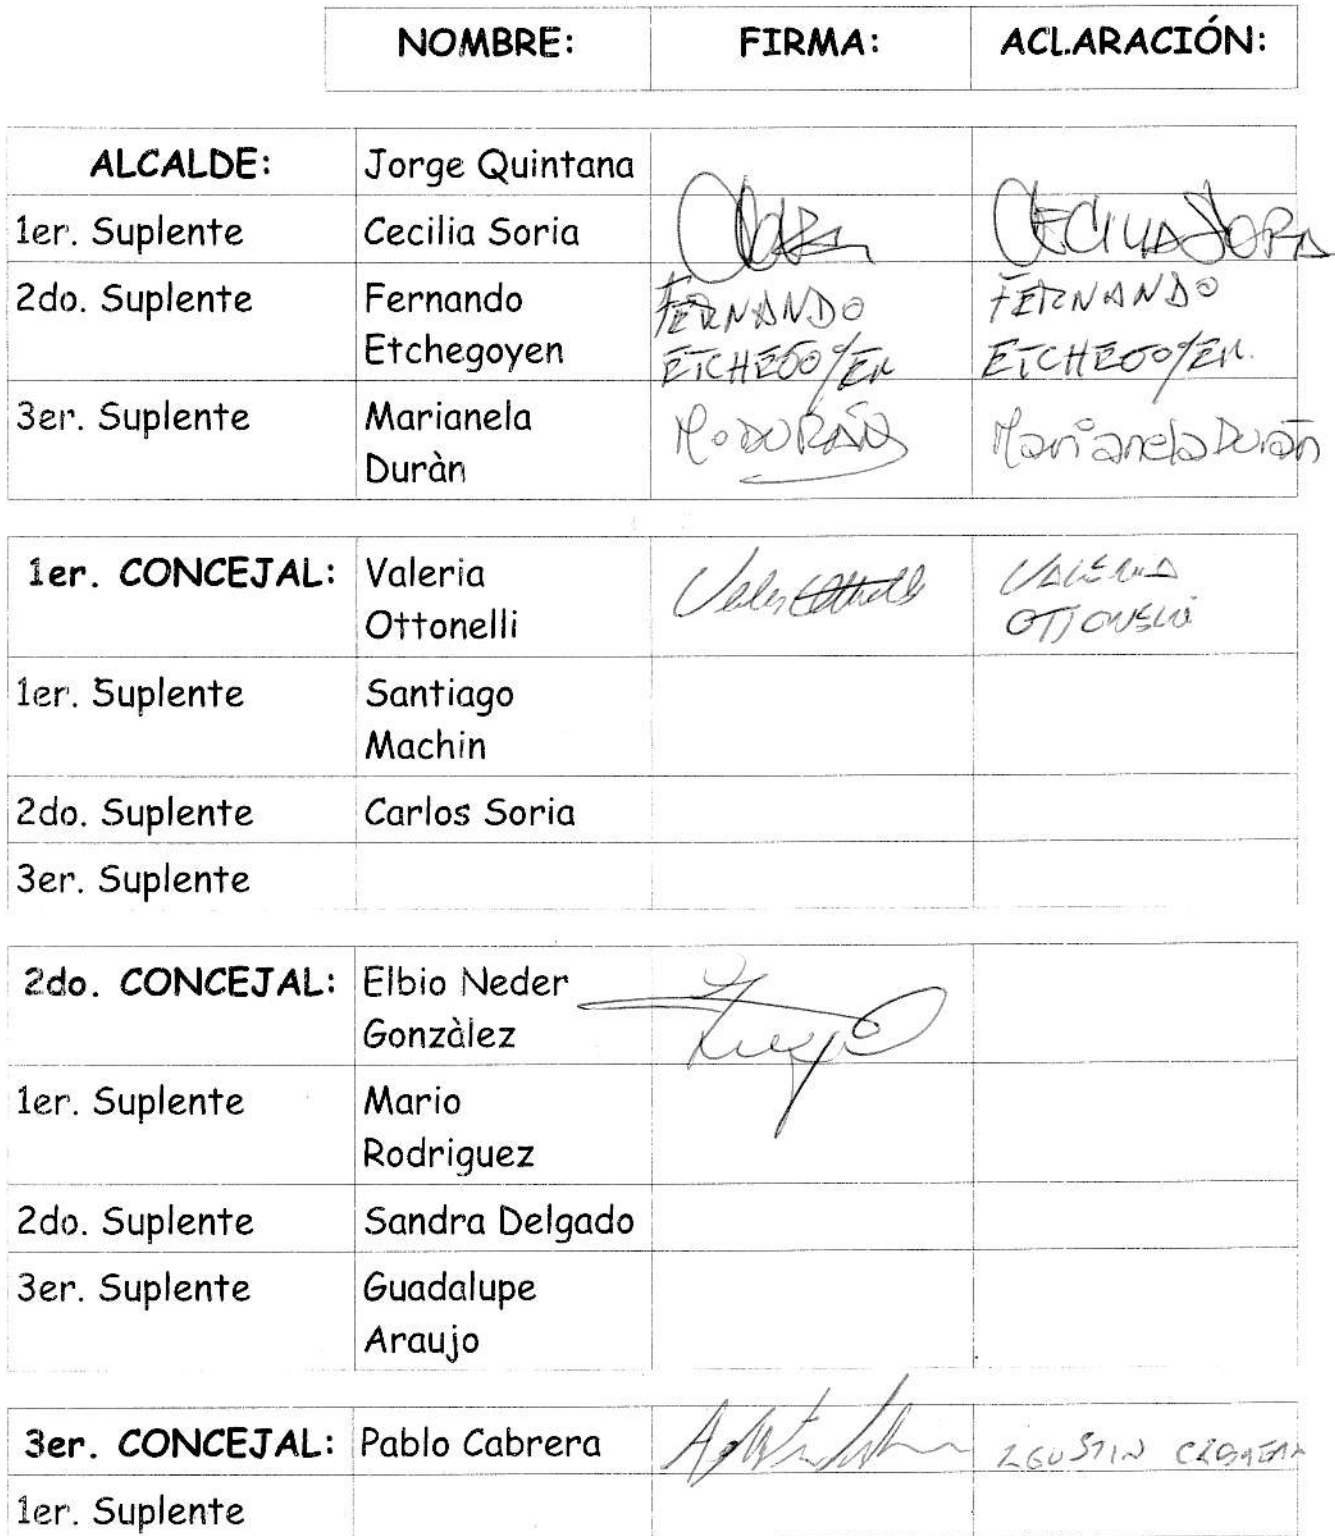 NOMBRE: FIRMA: ACLARACIÓN:
ALCALDE: Jorge Quintana
1er. Suplente Cecilia Soria CECILIA SORIA
2do. Suplente Fernando FERNANDO FERNANDO
Etchegoyen ETCHEGOYEN ETCHEGOYEN.
3er. Suplente Marianela M. DURÁN Marianela Durán
Duràn
1er. CONCEJAL: Valeria VALERIA
Ottonelli OTTONELLI
1er. Suplente Santiago
Machin
2do. Suplente Carlos Soria
3er. Suplente
2do. CONCEJAL: Elbio Neder
Gonzàlez
1er. Suplente Mario
Rodriguez
2do. Suplente Sandra Delgado
3er. Suplente Guadalupe
Araujo
3er. CONCEJAL: Pablo Cabrera AGUSTIN CABRERA
1er. Suplente